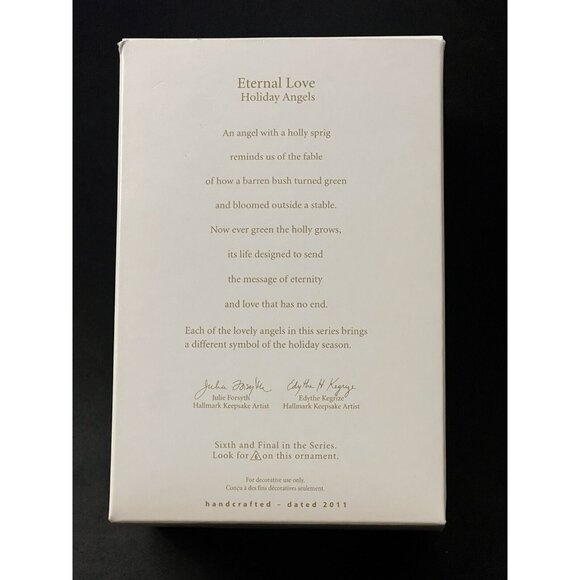 Eternal Love
Holiday Angels
An angel with a holly sprig
reminds us of the fable
of how a barren bush turned green
and bloomed outside a stable.
Now ever green the holly grows,
its life designed to send
the message of eternity
and love that has no end.
Each of the lovely angels in this series brings
a different symbol of the holiday season.
Julie Forsyth Edythe H Kegrize
Julie Forsyth Edythe Kegrize
Hallmark Keepsake Artist Hallmark Keepsake Artist
Sixth and Final in the Series.
Look for 6 on this ornament.
For decorative use only.
Conçu à des fins décoratives seulement.
handcrafted – dated 2011